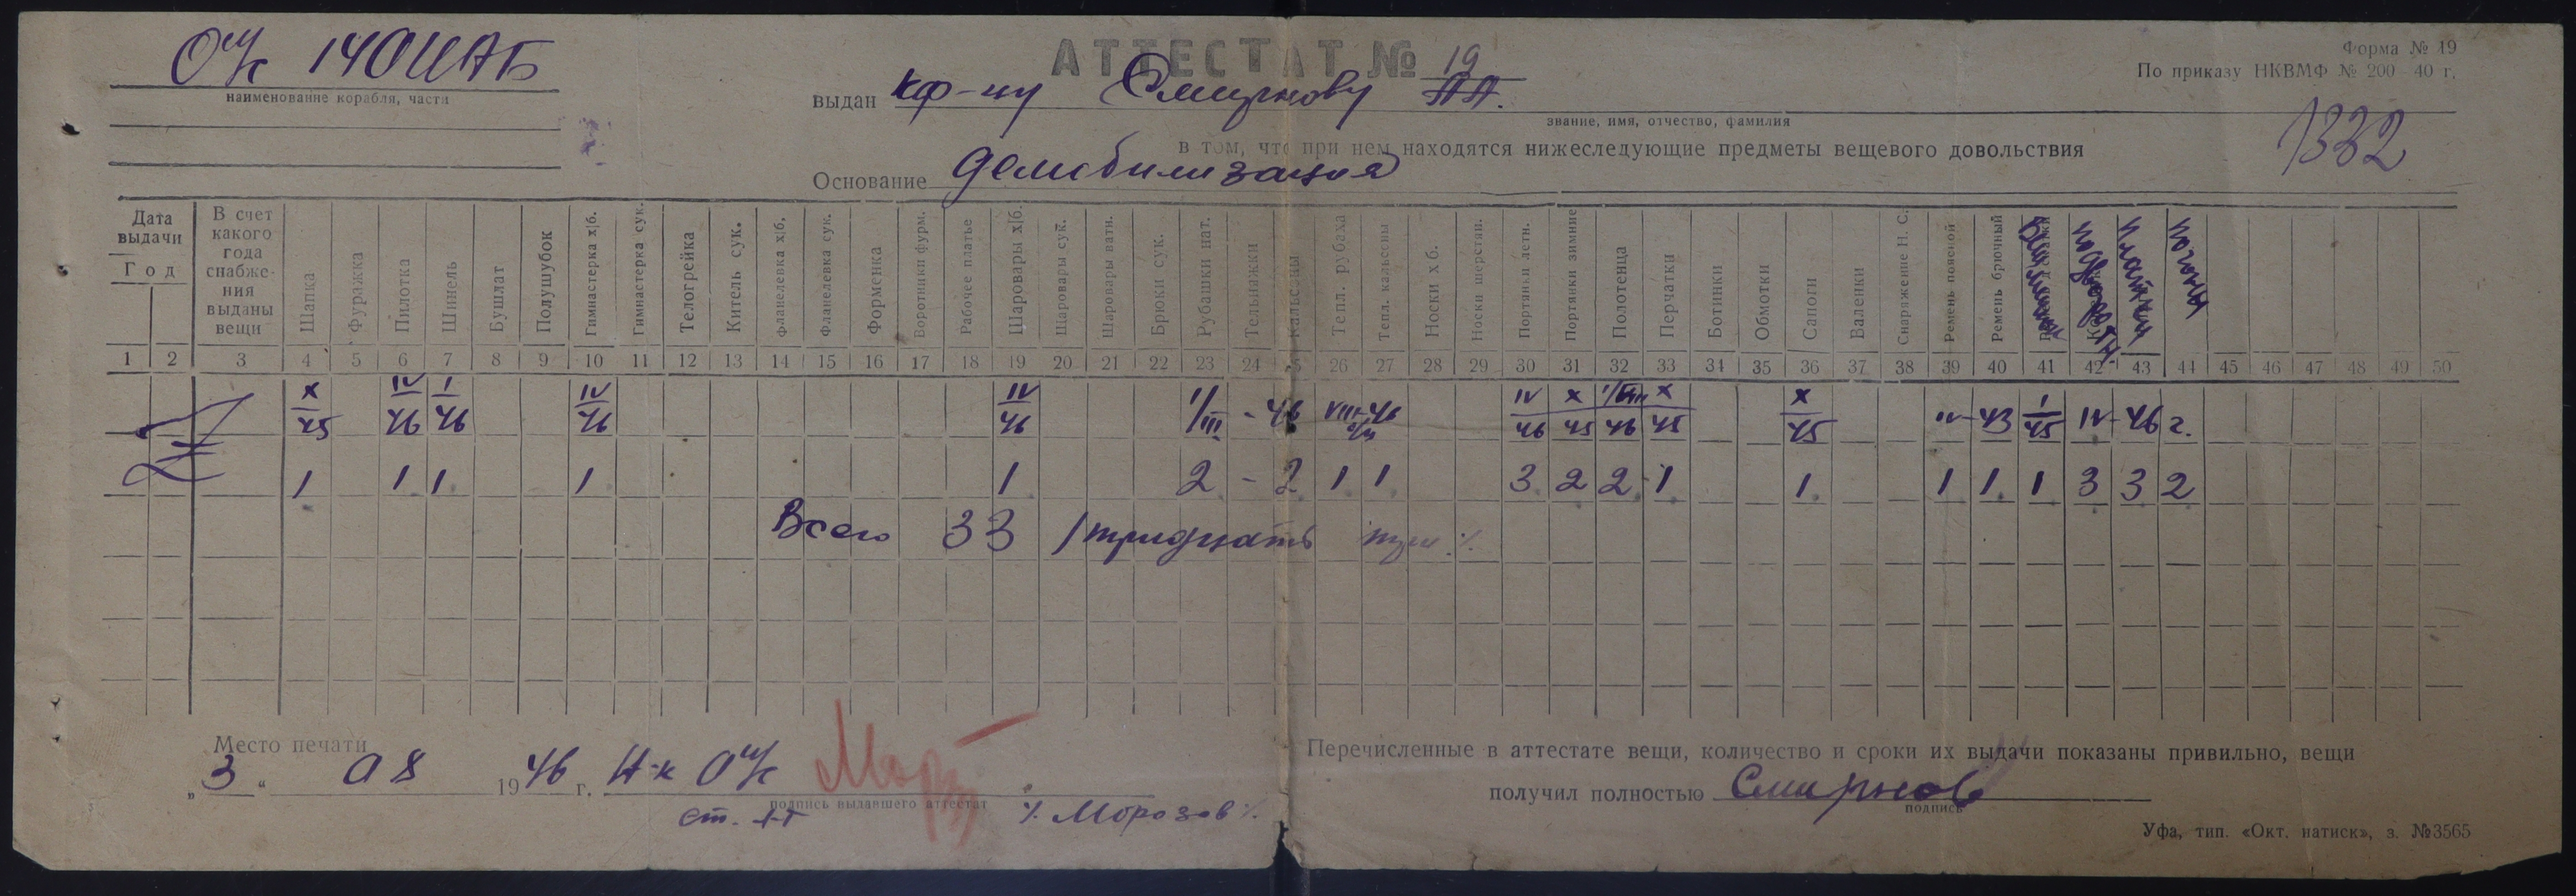 АТТЕСТАТ № 19
Форма № 19
По приказу НКВМФ № 200 - 40 г.
наименование корабля, части
выдан Смирнову
звание, имя, отчество, фамилия
1332
в том, что при нем находятся нижеследующие предметы вещевого довольствия
Основание демобилизация
Дата выдачи
Год
В счет какого года снабже- ния выданы вещи
Шапка
Фуражка
Пилотка
Шинель
Бушлат
Полушубок
Гимнастерка х|б.
Гимнастерка сук.
Телогрейка
Китель сук.
Фланелевка х|б,
Фланелевка сук.
Форменка
Воротники форм.
Рабочее платье
Шаровары х|б.
Шаровары сук.
Шаровары ватн.
Брюки сук.
Рубашки нат.
Тельняжки
Кальсоны
Тепл. рубаха
Тепл. кальсоны
Носки х б.
Носки шерстян.
Портянки летн.
Портянки зимние
Полотенца
Перчатки
Ботинки
Обмотки
Сапоги
Валенки
Снаряжение Н. С.
Ремень поясной
Ремень брючный
погон
1 2 3 4 5 6 7 8 9 10 11 12 13 14 15 16 17 18 19 20 21 22 23 24 25 26 27 28 29 30 31 32 33 34 35 36 37 38 39 40 41 42 43 44 45 46 47 48 49 50
X/45 IV/46 I/46 IV/46 IV/46 - 46 IV/46 X/45 X/45 X/45 IV-43 1/45 IV-46 г.
1 1 1 1 1 2 - 2 1 1 3 2 2 1 1 1 1 1 3 3 2
Всего 33 /тридцать три ./.
Место печати
„3“ 08 1946 г.
подпись выдавшего аттестат
ст. л-т ./. Морозов ./.
Перечисленные в аттестате вещи, количество и сроки их выдачи показаны привильно, вещи
получил полностью Смирнов
подпись
Уфа, тип. «Окт. натиск», з. №3565